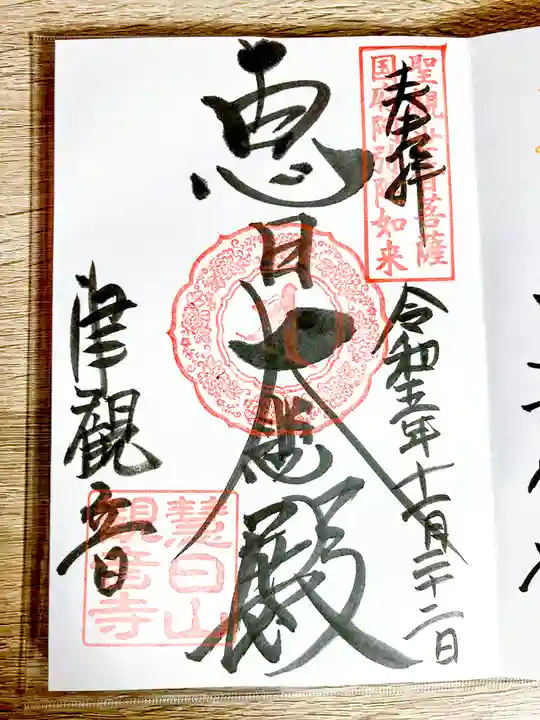 奉拝
聖観世音菩薩
国府阿弥陀如来
令和五年十一月二十二日
恵日大悲殿
津觀音
慧日山
観音寺